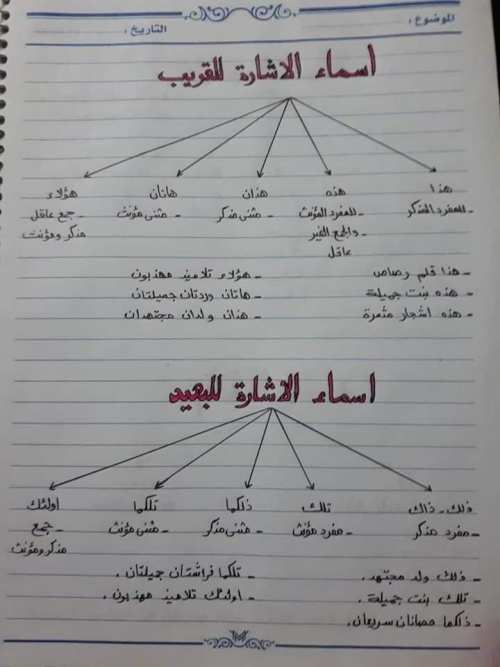 الموضوع :
التاريخ :
أسماء الاشارة للقريب
هذا هذه هذان هاتان هؤلاء
- للمفرد المذكر - للمفرد المؤنث - مثنى مذكر - مثنى مؤنث - جمع عاقل
والجمع الغير مذكر ومؤنث
عاقل
- هذا قلم رصاص - هؤلاء تلاميذ مهذبون
- هذه بنت جميلة - هاتان وردتان جميلتان
- هذه اشجار مثمرة - هذان ولدان مجتهدان
اسماء الاشارة للبعيد
ذلك - ذاك تلك ذلكما تلكما اولئك
- مفرد مذكر - مفرد مؤنث - مثنى مذكر - مثنى مؤنث - جمع
مذكر ومؤنث
- ذلك ولد مجتهد . - تلكما فراشتان جميلتان .
- تلك بنت جميلة . - اولئك تلاميذ مهذبون .
- ذلكما حصانان سريعان .